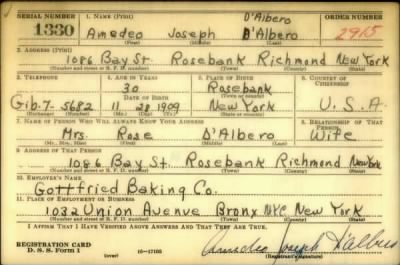 SERIAL NUMBER 1. NAME (Print) D'Albero ORDER NUMBER
1330 Amedeo Joseph D'Albero 2915
(First) (Middle) (Last)
2. ADDRESS (Print)
1086 Bay St. Rosebank Richmond New York
(Number and street or R. F. D. number) (Town) (County) (State)
3. TELEPHONE 4. AGE IN YEARS 5. PLACE OF BIRTH 6. COUNTRY OF CITIZENSHIP
30 Rosebank
DATE OF BIRTH
Gib. 7- 5682 11 28 1909 New York U. S. A
7. NAME OF PERSON WHO WILL ALWAYS KNOW YOUR ADDRESS 8. RELATIONSHIP OF THAT PERSON
Mrs. Rose D'Albero Wife
(Mr., Mrs., Miss) (First) (Middle) (Last)
9. ADDRESS OF THAT PERSON
1086 Bay St. Rosebank Richmond New York
(Number and street or R. F. D. number) (Town) (County) (State)
10. EMPLOYER'S NAME
Gottfried Baking Co.
11. PLACE OF EMPLOYMENT OR BUSINESS
1032 Union Avenue Bronx NYC New York
(Number and street or R. F. D. number) (Town) (County) (State)
I AFFIRM THAT I HAVE VERIFIED ABOVE ANSWERS AND THAT THEY ARE TRUE.
REGISTRATION CARD
D. S. S. Form 1 (over) 16-17105 Amedeo Joseph D'Albero
(Registrant's signature)